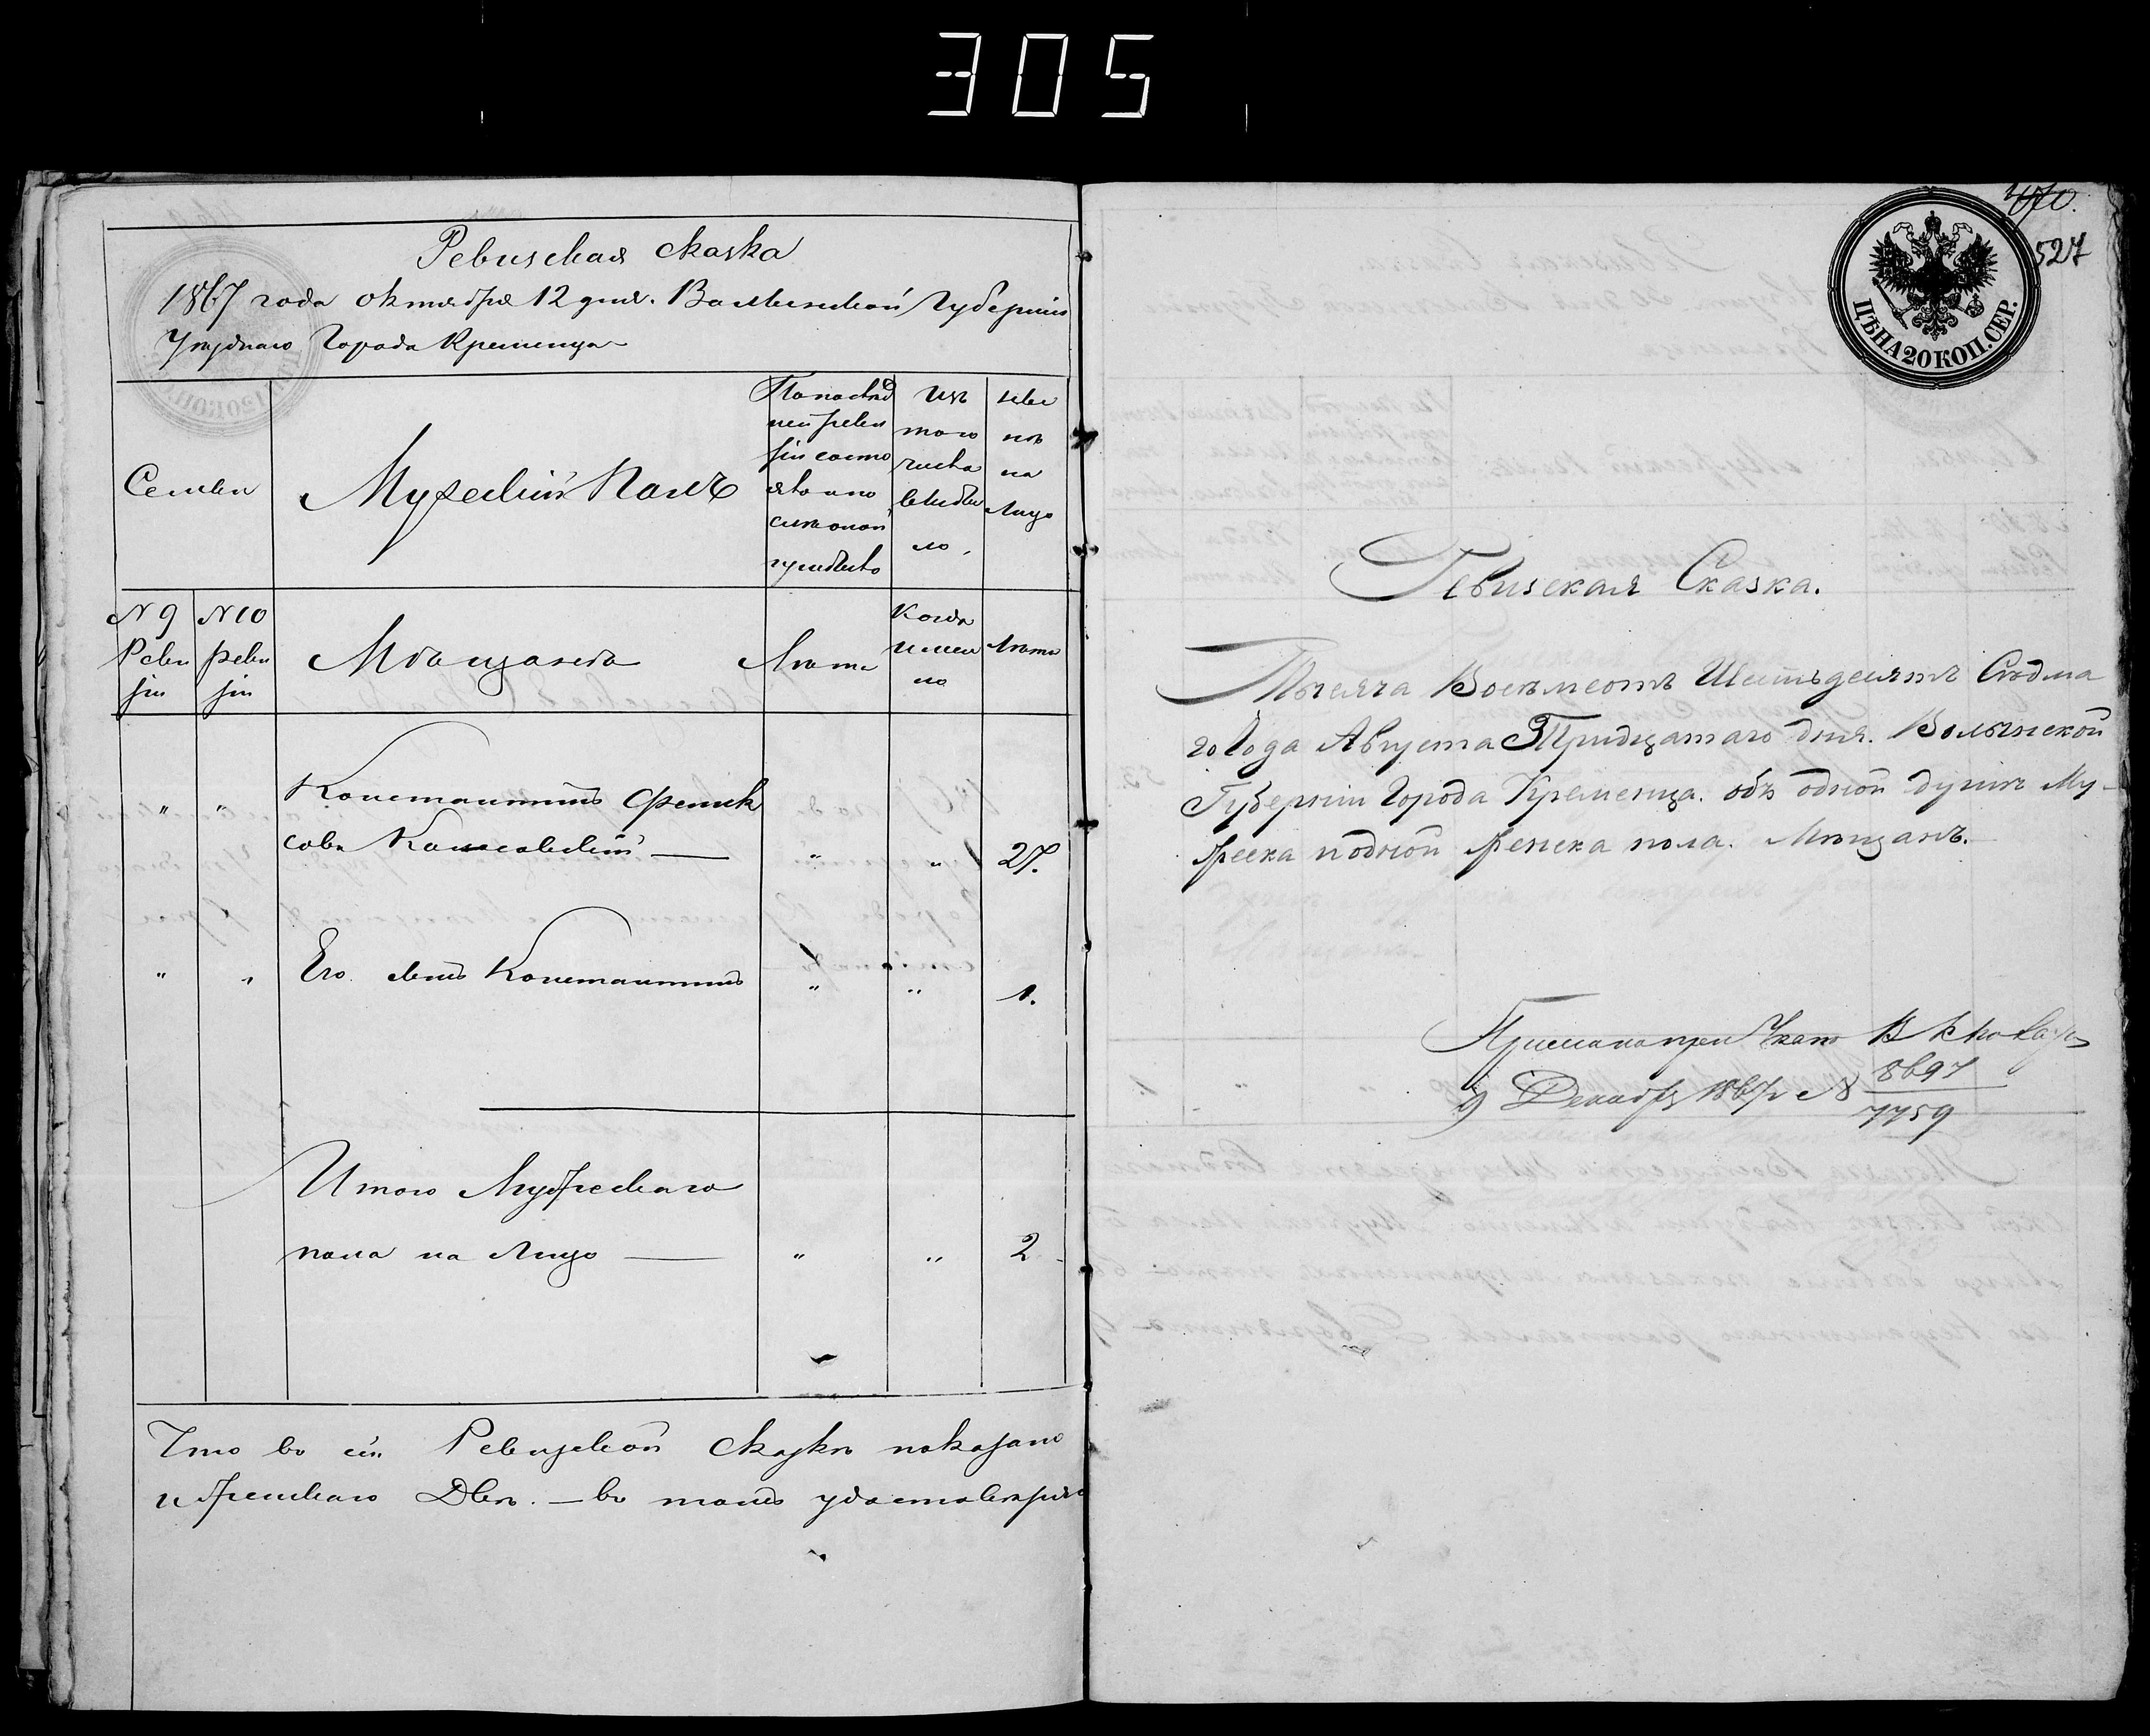 305
Ревизская сказка
1867 года октября 12 дня. Волынской Губернии
Уезднаго Города Кременца
Семьи
Мужеский Полъ
По послед
ней реви
зіи состо
яло и по
сле оной
прибыло
Изъ
того
числа
выбы
ло
Ныне
на
Лицо
N 9
Реви
зіи
N 10
реви
зіи
Мещанъ
Лета
Когда
имен
но
Лета
" " Константинъ Феликсова
27.
" " Его сынъ Константинъ " " 1.
Итого Мужескаго
пола на Лицо — " " 2
Что въ сей Ревизской Сказке показано
Двѣ. — въ томъ удостоверяю
400.
527
ЦѢНА 20 КОП. СЕР.
Ревизская Сказка.
Тысяча Восемьсотъ Шестьдесятъ Седьма
го Года Августа Тридцатаго дня. Волынской
Губерніи Города Кременца. объ одной душѣ Му-
жеска и одной женска пола. Мѣщанъ.
9 Декабр 1867 N 8697
7759